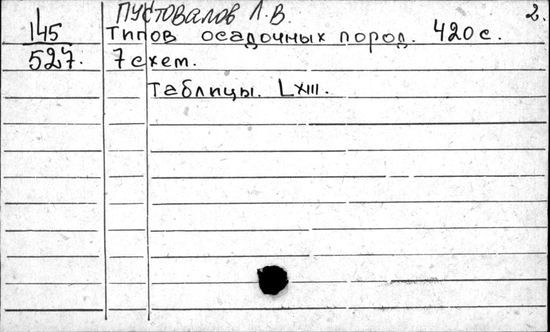 Пустовалов Л.В. 2.
145 Типов осадочных пород. 420 с.
527. 7 схем.
Таблицы. LXIII.